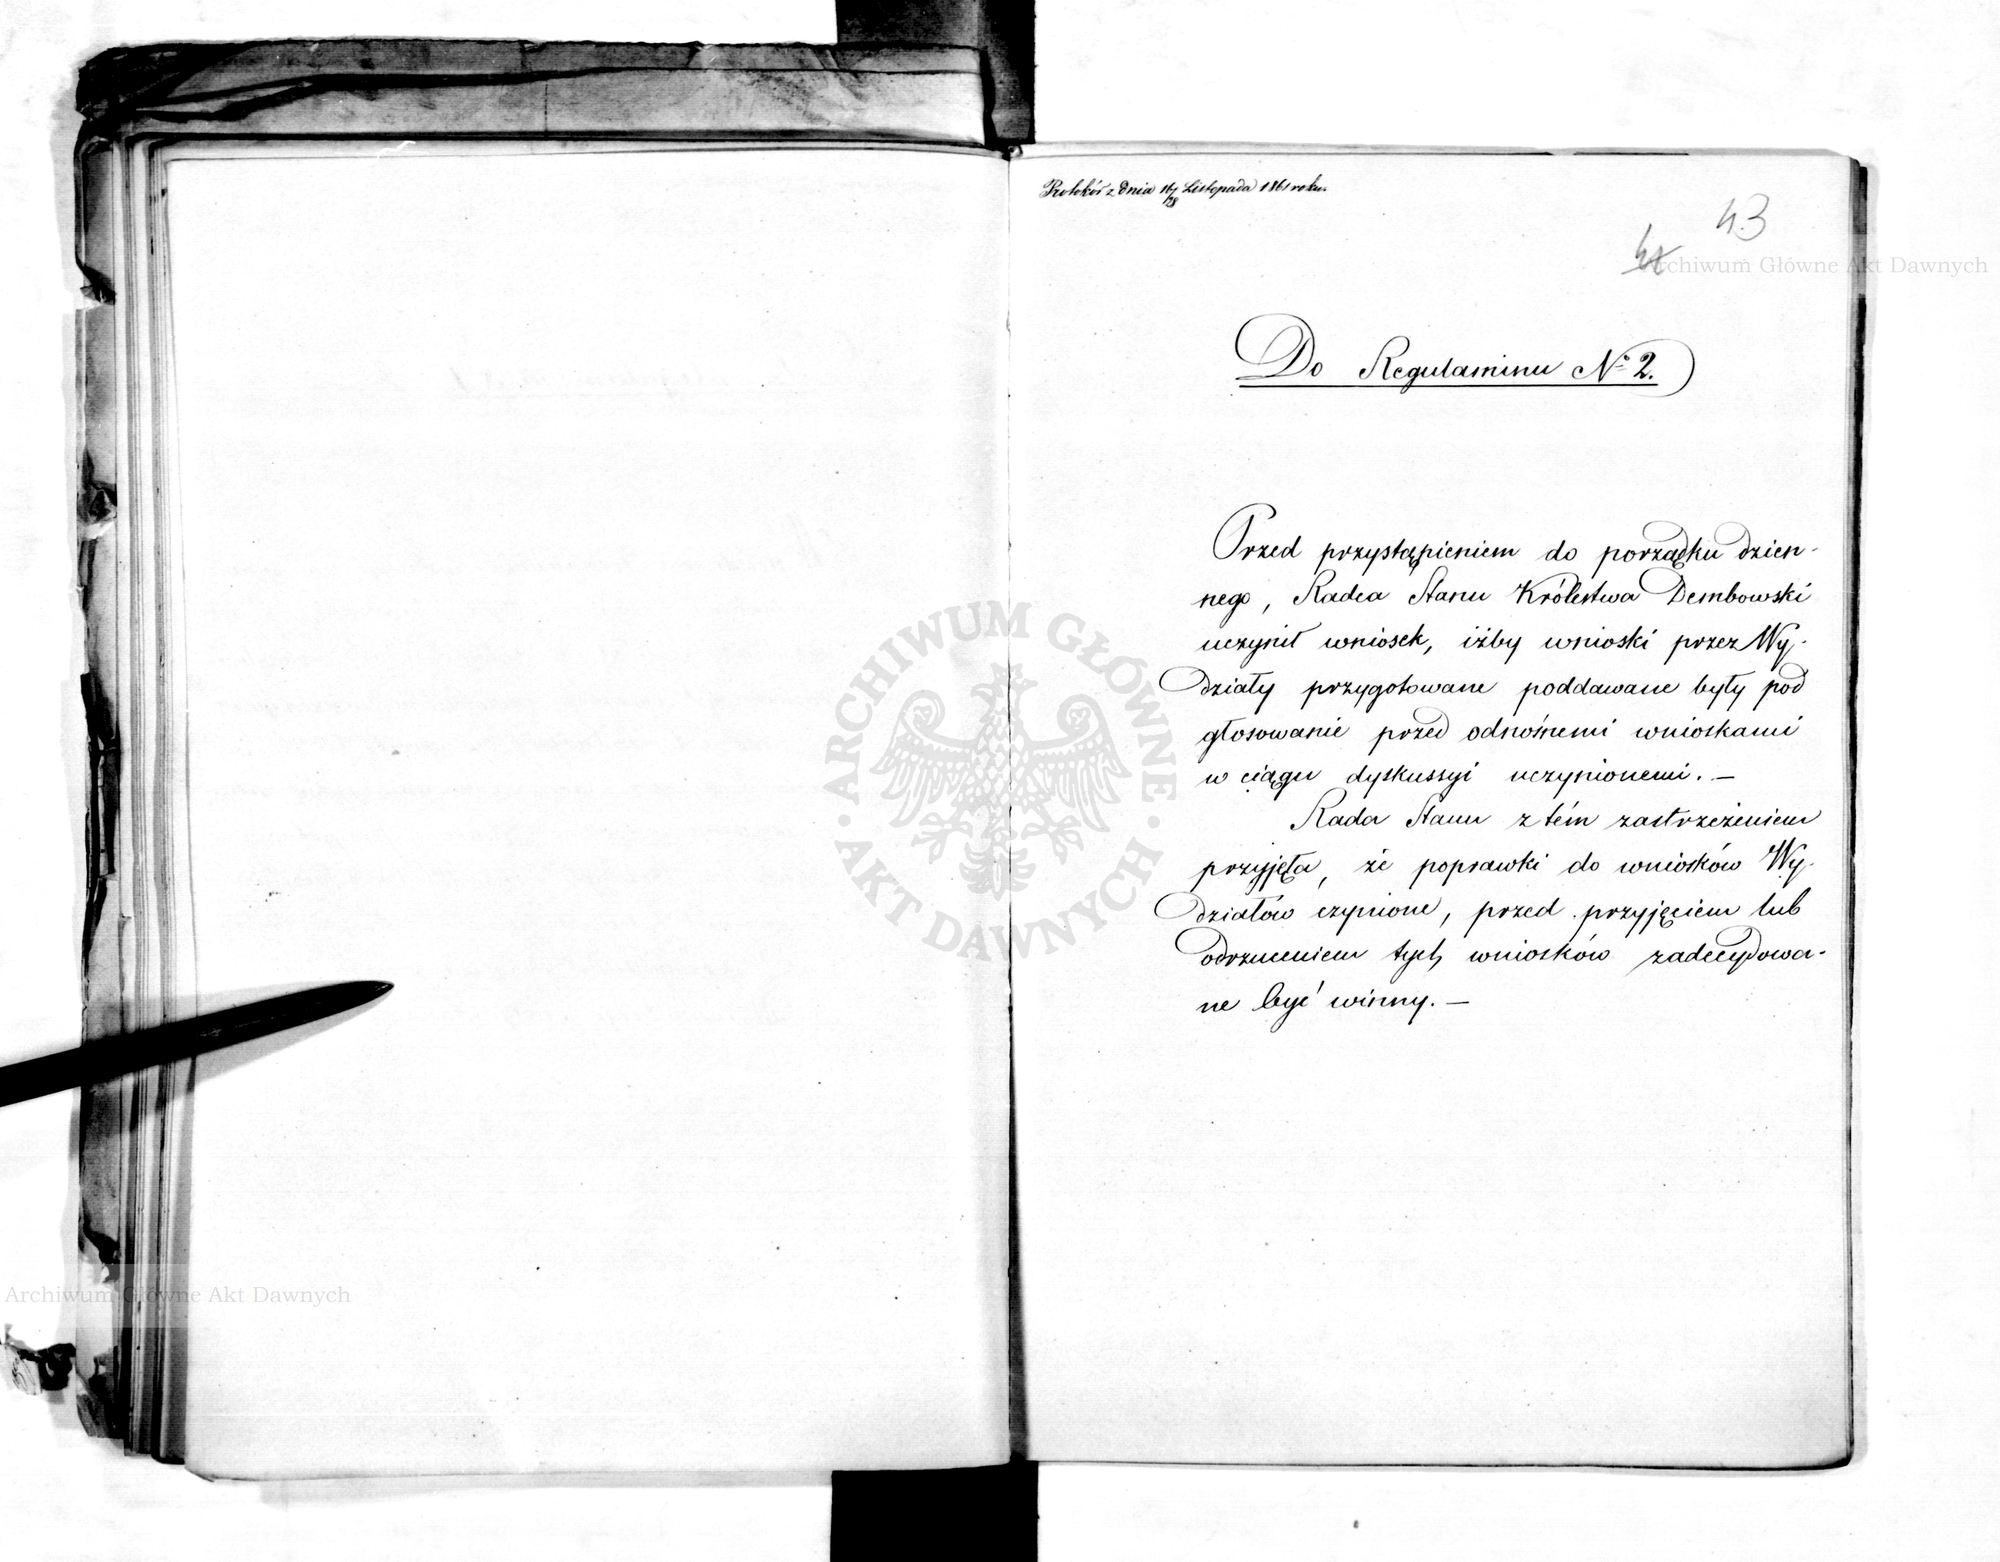 Protokół z dnia 16/28 Listopada 1861 roku.
43
Archiwum Główne Akt Dawnych
Do Regulaminu № 2.
Przed przystąpieniem do porządku dzien-
nego, Radca Stanu Królestwa Dembowski
uczynił wniosek, iżby wnioski przez Wy-
działy przygotowane poddawane były pod
głosowanie przed odnośnemi wnioskami
w ciągu dyskussyi uczynionemi. —
Rada Stanu z tém zastrzeżeniem
przyjęła, że poprawki do wniosków Wy-
działów czynione, przed przyjęciem lub
odrzuceniem tych wniosków zadecydowa-
ne być winny. —
ARCHIWUM GŁÓWNE
AKT DAWNYCH
Archiwum Główne Akt Dawnych